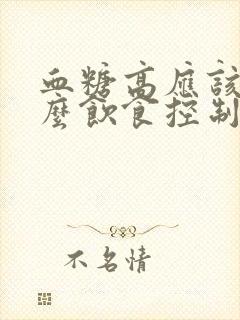 血糖高應該
麼飲食控制
不名情